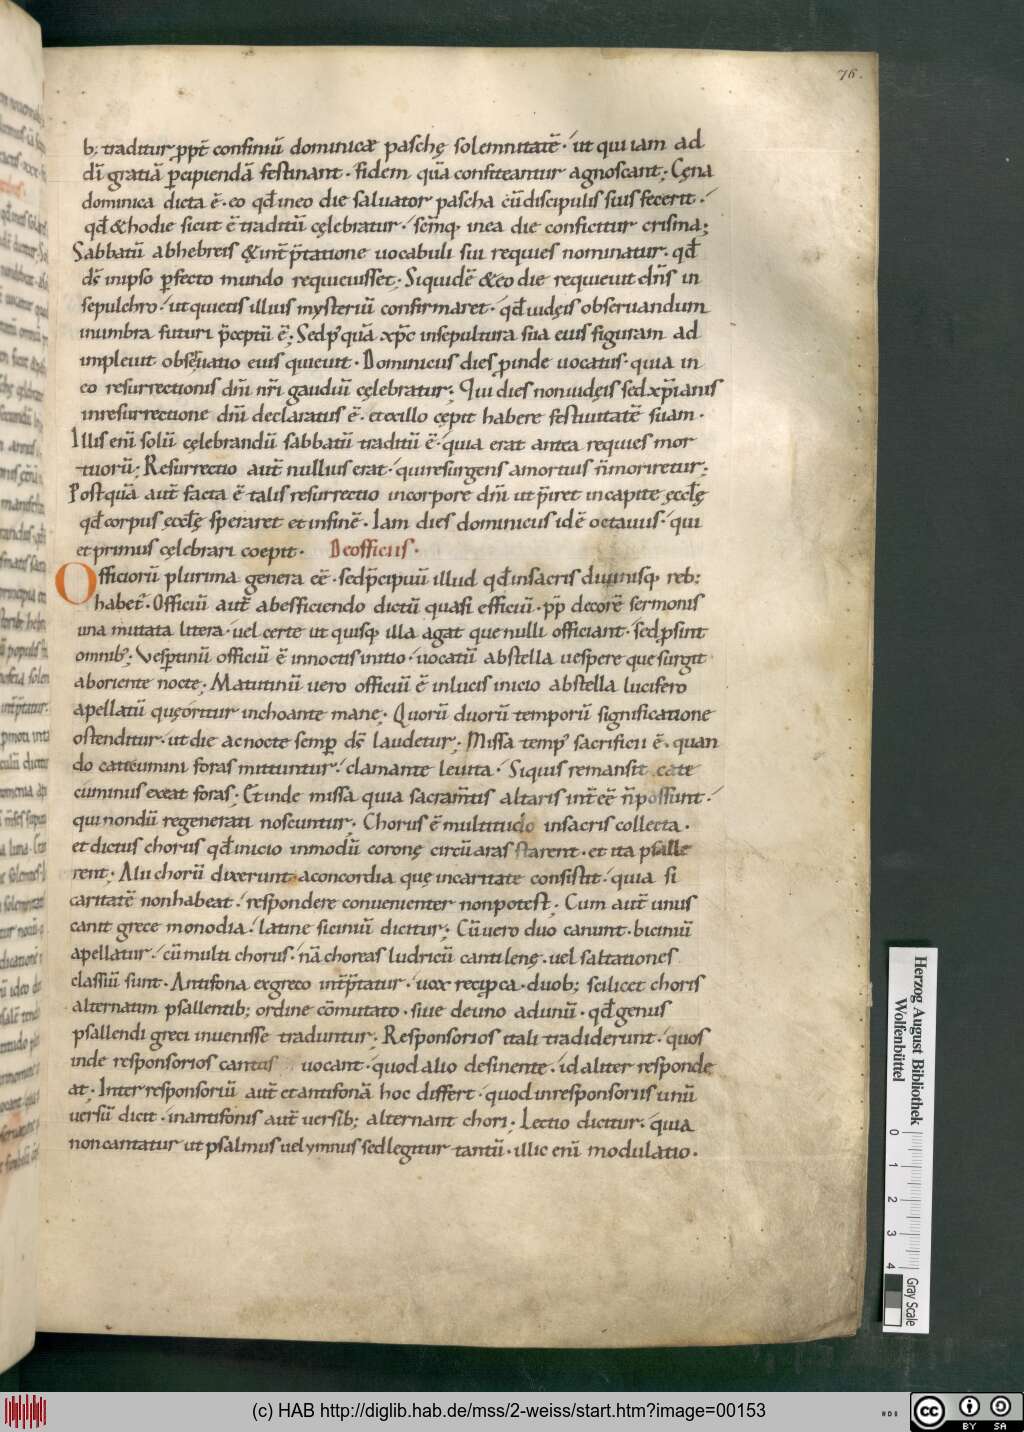 76.
b; traditur, ꝓpt̄ confiniū dominicæ paschę solemnitatē · ut qui iam ad
dī gratiā ꝑcipiendā festinant · fidem quā confiteantur agnoscant; Cęna
dominica dicta ē · eo qđ in eo die saluator pascha cū discipulis suis fecerit ·
qđ & hodie sicut ē traditū cęlebratur · sc̄mq; in ea die conficitur crisma;
Sabbatū ab hebreis & int̄p̄tatione uocabuli sui requies nominatur · qđ
ds̄ in ipso ꝑfecto mundo requieuisset · Siquidē & eo die requieuit dn̄s in
sepulchro · ut quietis illius mysteriū confirmaret · qđ iudęis obseruandum
in umbra futuri p̄ceptū ē; Sed p' quā xp̄c in sepultura sua eius figuram ad
impleuit obseruatio eius quieuit · Dominicus dies ꝓinde uocatus · quia in
eo resurrectionis dn̄i nr̄i gaudiū cęlebratur; Qui dies non iudęis sed xp̄ianis
in resurrectione dn̄i declaratus ē · et ex illo cępit habere festiuitatē suam ·
Illis eni solū cęlebrandū sabbatū traditū ē · quia erat antea requies mor
tuorū; Resurrectio aut̄ nullius erat · qui resurgens a mortuis n̄ moriretur;
Postquā aut̄ facta ē talis resurrectio in corpore dn̄i ut p̄iret in capite ęccl̄ę
qđ corpus ęccl̄ę speraret et in finē · Iam dies dominicus id ē octauus · qui
et primus cęlebrari coepit · De officiis ·
Officiorū plurima genera eē · sed p̄cipuū illud qđ in sacris diuinisq; reb;
habet̄ · Officiū aut̄ ab efficiendo dictū quasi efficiū · pp̄ decorē sermonis
una mutata litera · uel certe ut quisq; illa agat que nulli officiant · sed ꝓsint
omnib; Vesꝑtinū officiū ē in noctis initio · uocatū ab stella uespere que surgit
a boriente nocte; Matutinū uero officiū ē in lucis inicio ab stella lucifero
apellatū quę oritur inchoante mane; Quorū duorū temporū significatione
ostenditur · ut die ac nocte semꝑ ds̄ laudetur; Missa temp' sacrificii ē · quan
do catecumini foras mittuntur · clamante leuita · Siquis remansit cate
cuminus exeat foras; Et inde missa quia sacram̄tis altaris int̄eē n̄ possunt ·
qui nondū regenerati noscuntur; Chorus ē multitudo in sacris collecta ·
et dictus chorus qđ inicio in modū coronę circū aras starent · et ita psalle
rent; Alii chorū dixerunt a concordia quę in caritate consistit · quia si
caritatē non habeat · respondere conuenienter non potest; Cum aut̄ unus
canit grece monodia · latine siciniū dicitur; Cū uero duo canunt · biciniū
apellatur · cū multi chorus · nā choreas ludricū cantilenę · uel saltationes
classiū sunt · Antifona ex greco int̄p̄tatur · uox reciꝓca · duob; scilicet choris
alternatim psallentib; ordine cōmutato · siue de uno ad unū · qđ genus
psallendi greci inuenisse traduntur; Responsorios itali tradiderunt · quos
inde responsorios cantus uocant · quod alio desinente · id aliter responde
at; Inter responsoriū aut̄ et antifonā hoc differt · quod in responsoriis unū
uersū dicit · in antifonis aut̄ uersib; alternant chori; Lectio dicitur · quia
non cantatur ut psalmus uel ymnus sed legitur tantū · illic eni modulatio ·
Herzog August Bibliothek
Wolfenbüttel
0 1 2 3 4
Gray Scale
(c) HAB http://diglib.hab.de/mss/2-weiss/start.htm?image=00153
cc BY SA